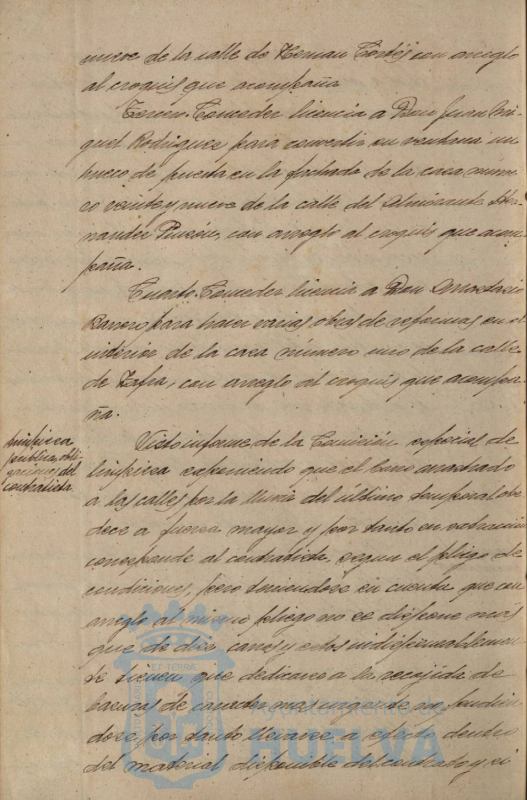 nueve de la calle de Hernan Cortés con arreglo
al croquis que acompaña
Tercero. Conceder licencia a Don Juan Mi-
guel Rodriguez para convertir en ventana un
hueco de puerta en la fachada de la casa nume-
ro veinte y nueve de la calle del Almirante Her-
nandez Pinzón, con arreglo al croquis que acom-
paña.
Cuarto. Conceder licencia a Don Anastacio
Barero para hacer varias obras de reformas en el
interior de la casa número uno de la calle
de Zafra, con arreglo al croquis que acompa-
ña.
limpieza
pública, obli-
gaciones del
contratista
Visto informe de la Comisión especial de
limpieza exponiendo que el barro arrastrado
a las calles por la lluvia del último temporal obe-
dece a fuerza mayor y por tanto su
corresponde al contratista, segun el pliego de
condiciones, pero teniendose en cuenta que con
arreglo al mismo pliego no se dispone mas
que de diez carros y estos indispensablemen-
te tienen que dedicarse a la recojida de
basuras de caracter mas urgente no pudien-
dose por tanto llevarse a efecto dentro
del material disponible del contrato y si
Ayuntamiento de
HUELVA